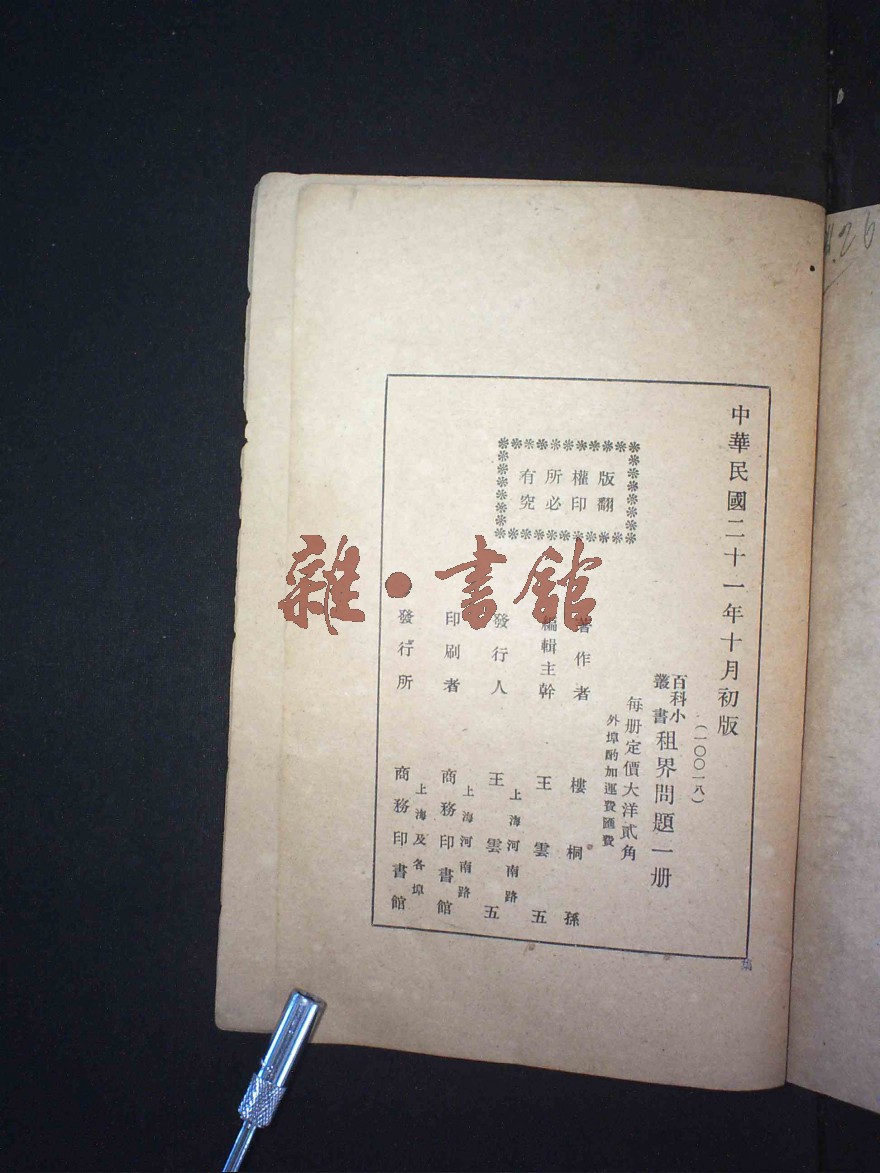 中華民國二十一年十月初版
(一〇〇一八)
百科小
叢書
租界問題一册
每册定價大洋貳角
外埠酌加運費匯費
版權所有
翻印必究
著作者 樓桐孫
編輯主幹 王雲五
發行人 上海河南路 王雲五
印刷者 上海河南路 商務印書館
發行所 上海及各埠 商務印書館
雜·書館